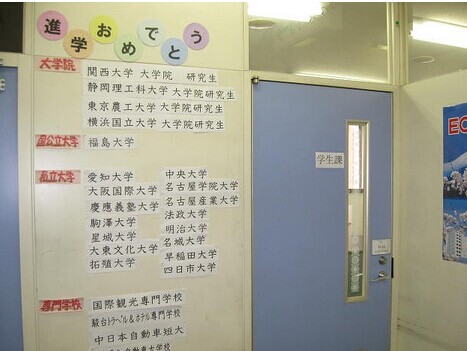 進学おめでとう
大学院
関西大学 大学院 研究生
静岡理工科大学 大学院研究生
東京農工大学 大学院研究生
横浜国立大学 大学院研究生
国公立大学
福島大学
私立大学
愛知大学
大阪国際大学
慶應義塾大学
駒澤大学
星城大学
大東文化大学
拓殖大学
中央大学
名古屋学院大学
名古屋産業大学
法政大学
明治大学
名城大学
早稲田大学
四日市大学
専門学校
国際観光専門学校
駿台トラベル&ホテル専門学校
中日本自動車短大
自動車大学校
学生課
EC